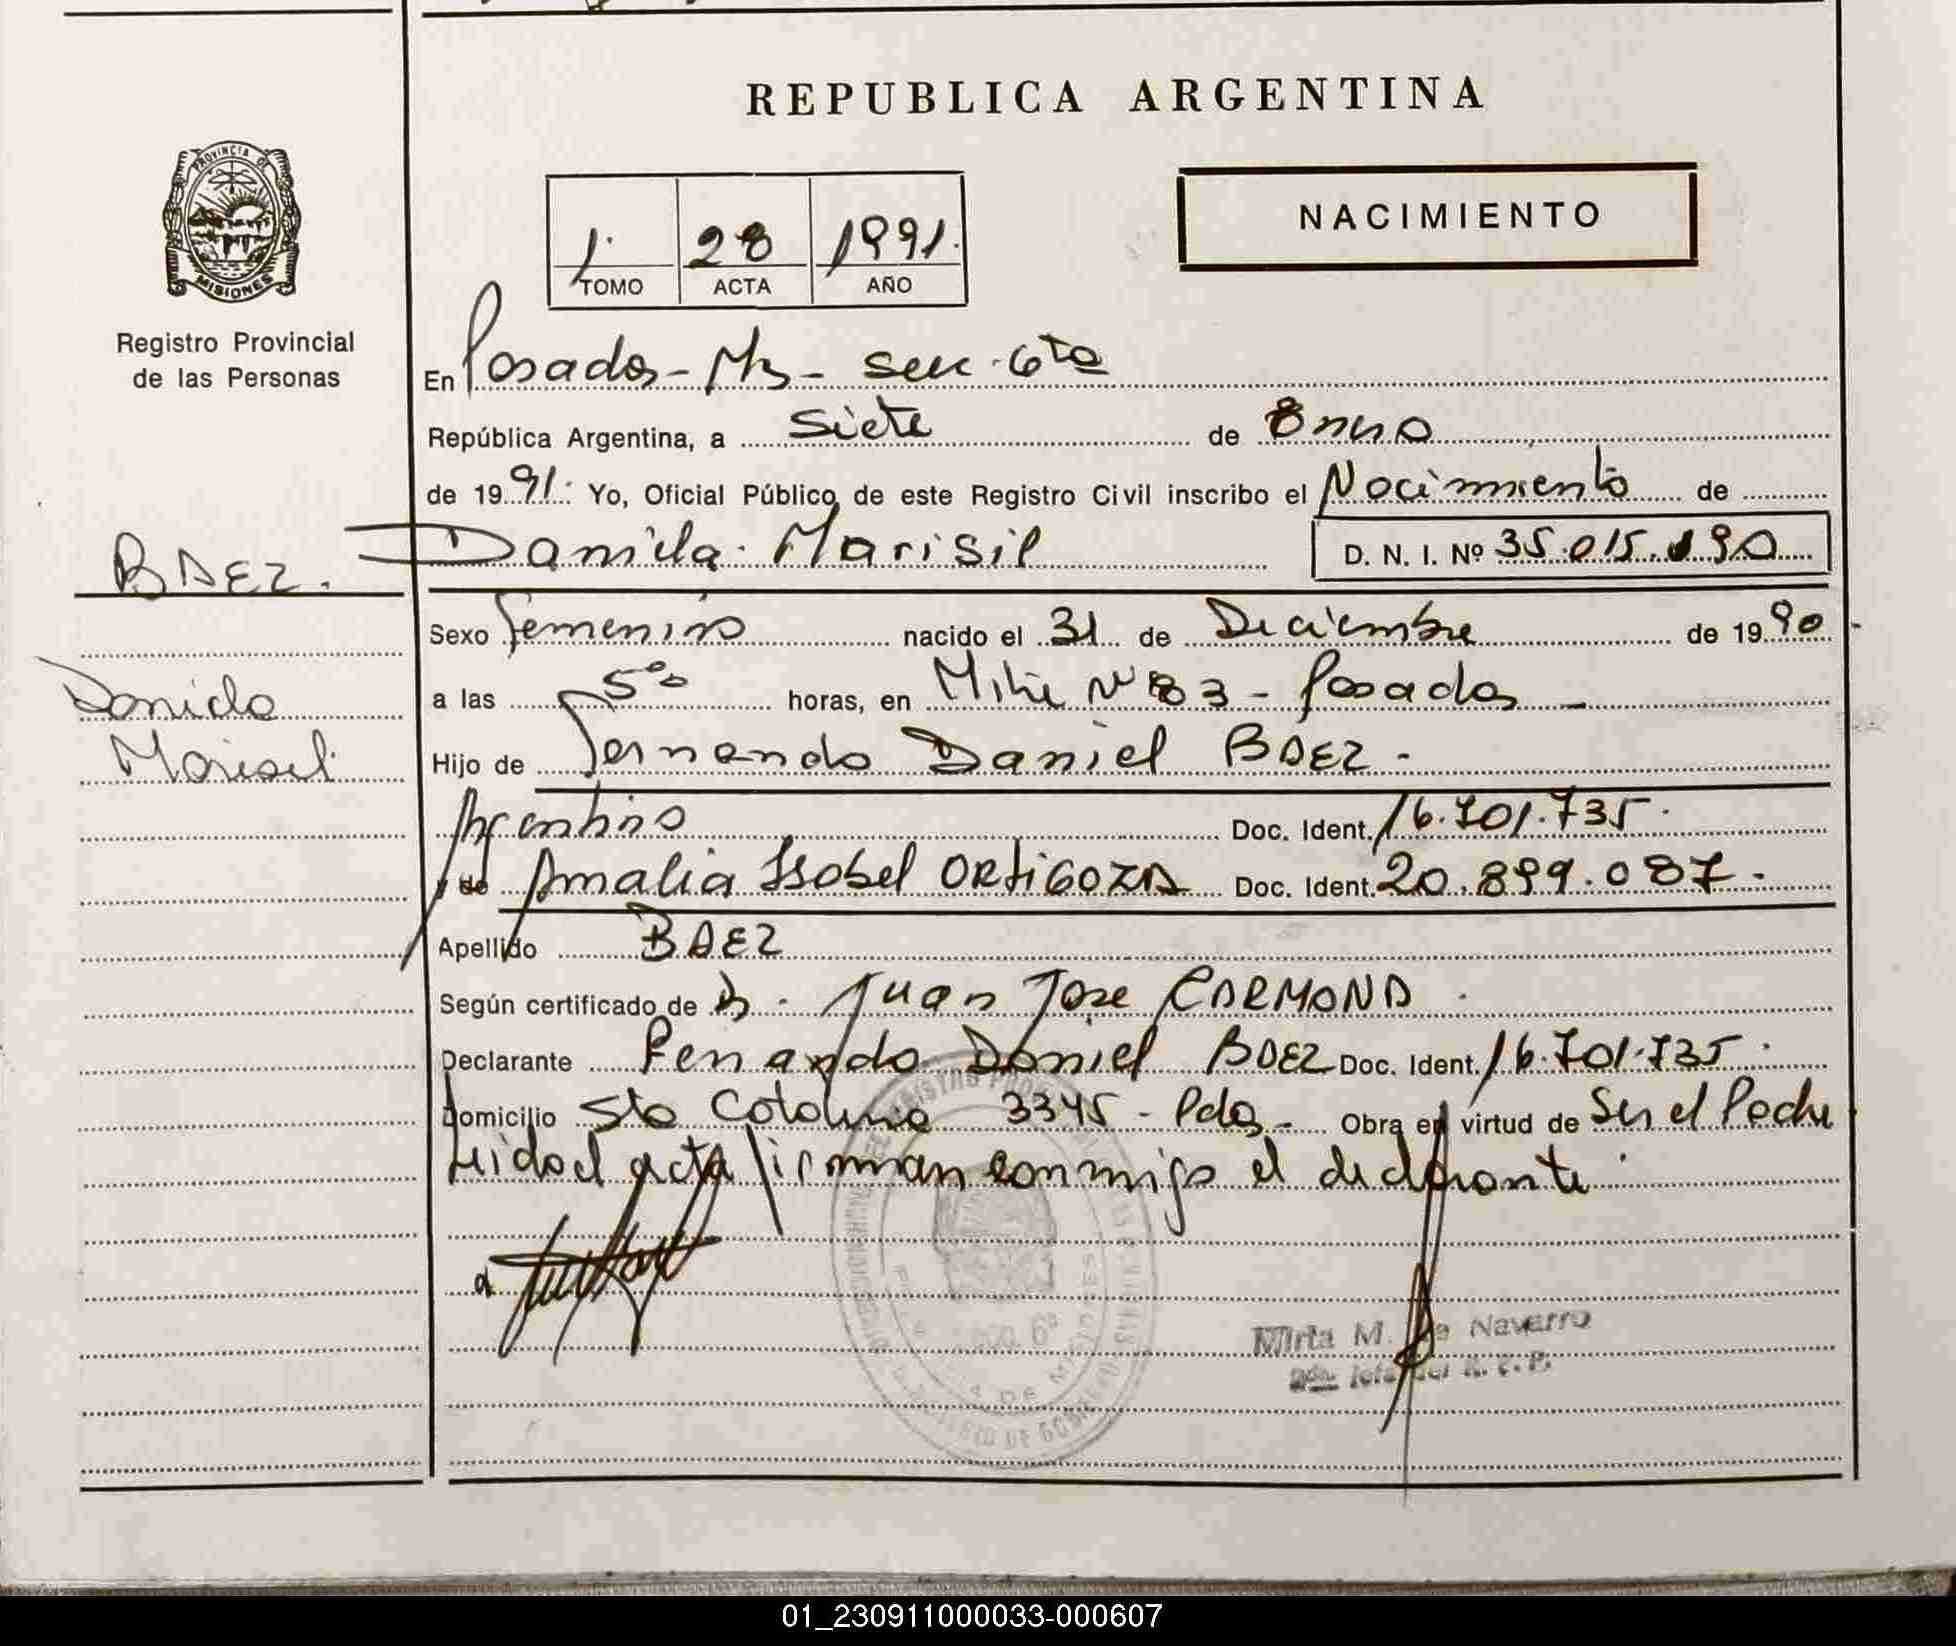 REPUBLICA ARGENTINA
PROVINCIA DE
MISIONES
Registro Provincial
de las Personas
NACIMIENTO
1. 28 1991.
TOMO ACTA AÑO
En Posadas - Ms - Secc. 6ta
República Argentina, a siete de Enero
de 1991. Yo, Oficial Público de este Registro Civil inscribo el Nacimiento de
BAEZ. Daniela Marisil D. N. I. Nº 35.015.190
Sexo femenino nacido el 31 de Diciembre de 1990
a las 5 00 horas, en Mitre Nº 83 - Posadas -
Daniela
Marisel
Hijo de Fernando Daniel BAEZ -
Argentino Doc. Ident. 16.701.735.
y de Amalia Isabel ORTIGOZA Doc. Ident. 20.899.087.
Apellido BAEZ
Según certificado de D. Juan Jose CARMONA.
Declarante Fenando Daniel BAEZ Doc. Ident. 16.701.735.
Domicilio Sta Catalina 3345 - Pdas - Obra en virtud de Ser el Padre
Leida el acta firman conmigo el declarante
Mirta M. de Navarro
01_230911000033-000607